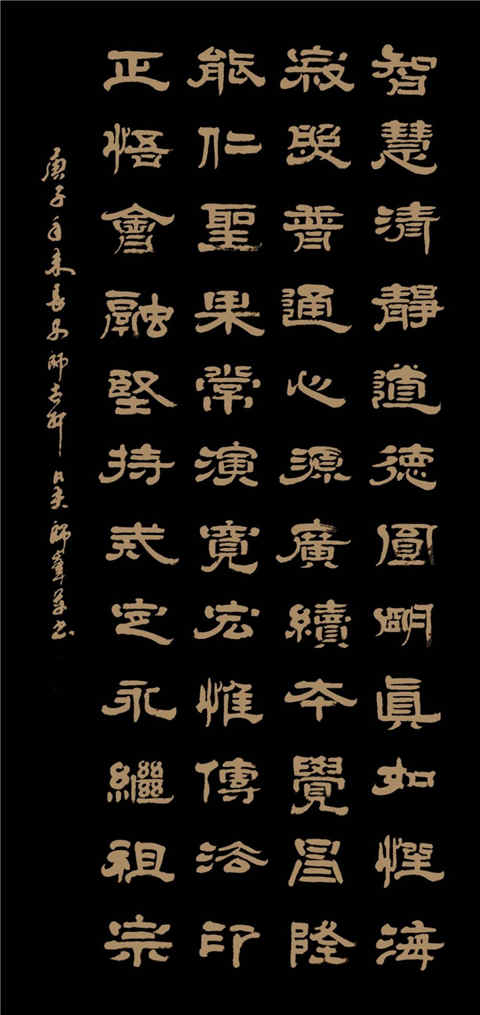 智慧清靜道德圓明眞如性海
寂照普通心源廣續本覺昌隆
能仁聖果常演寬宏惟傳法印
正悟會融堅持戒定永繼祖宗
庚子年末